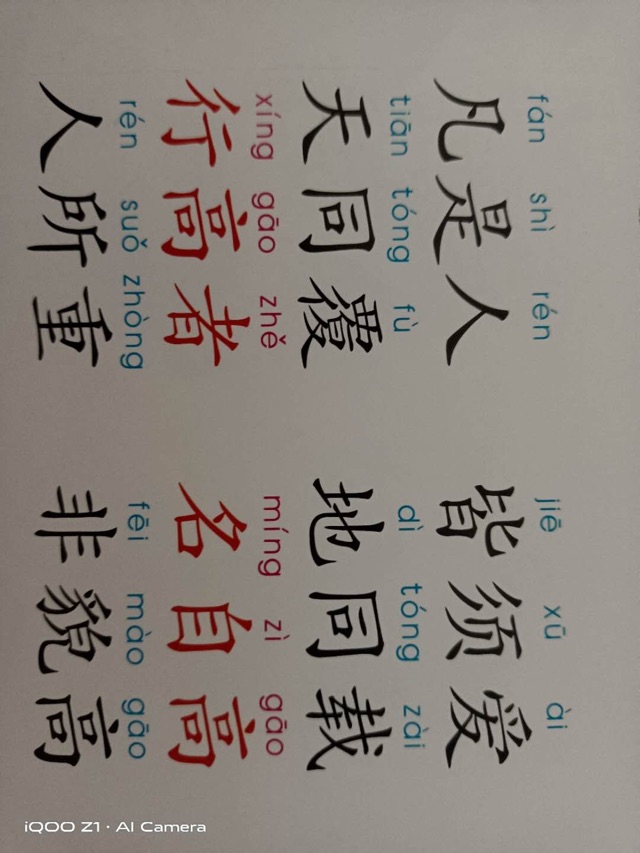 fán shì rén jiē xū ài
凡是人 皆须爱
tiān tóng fù dì tóng zài
天同覆 地同载
xíng gāo zhě míng zì gāo
行高者 名自高
rén suǒ zhòng fēi mào gāo
人所重 非貌高
iQOO Z1 · AI Camera